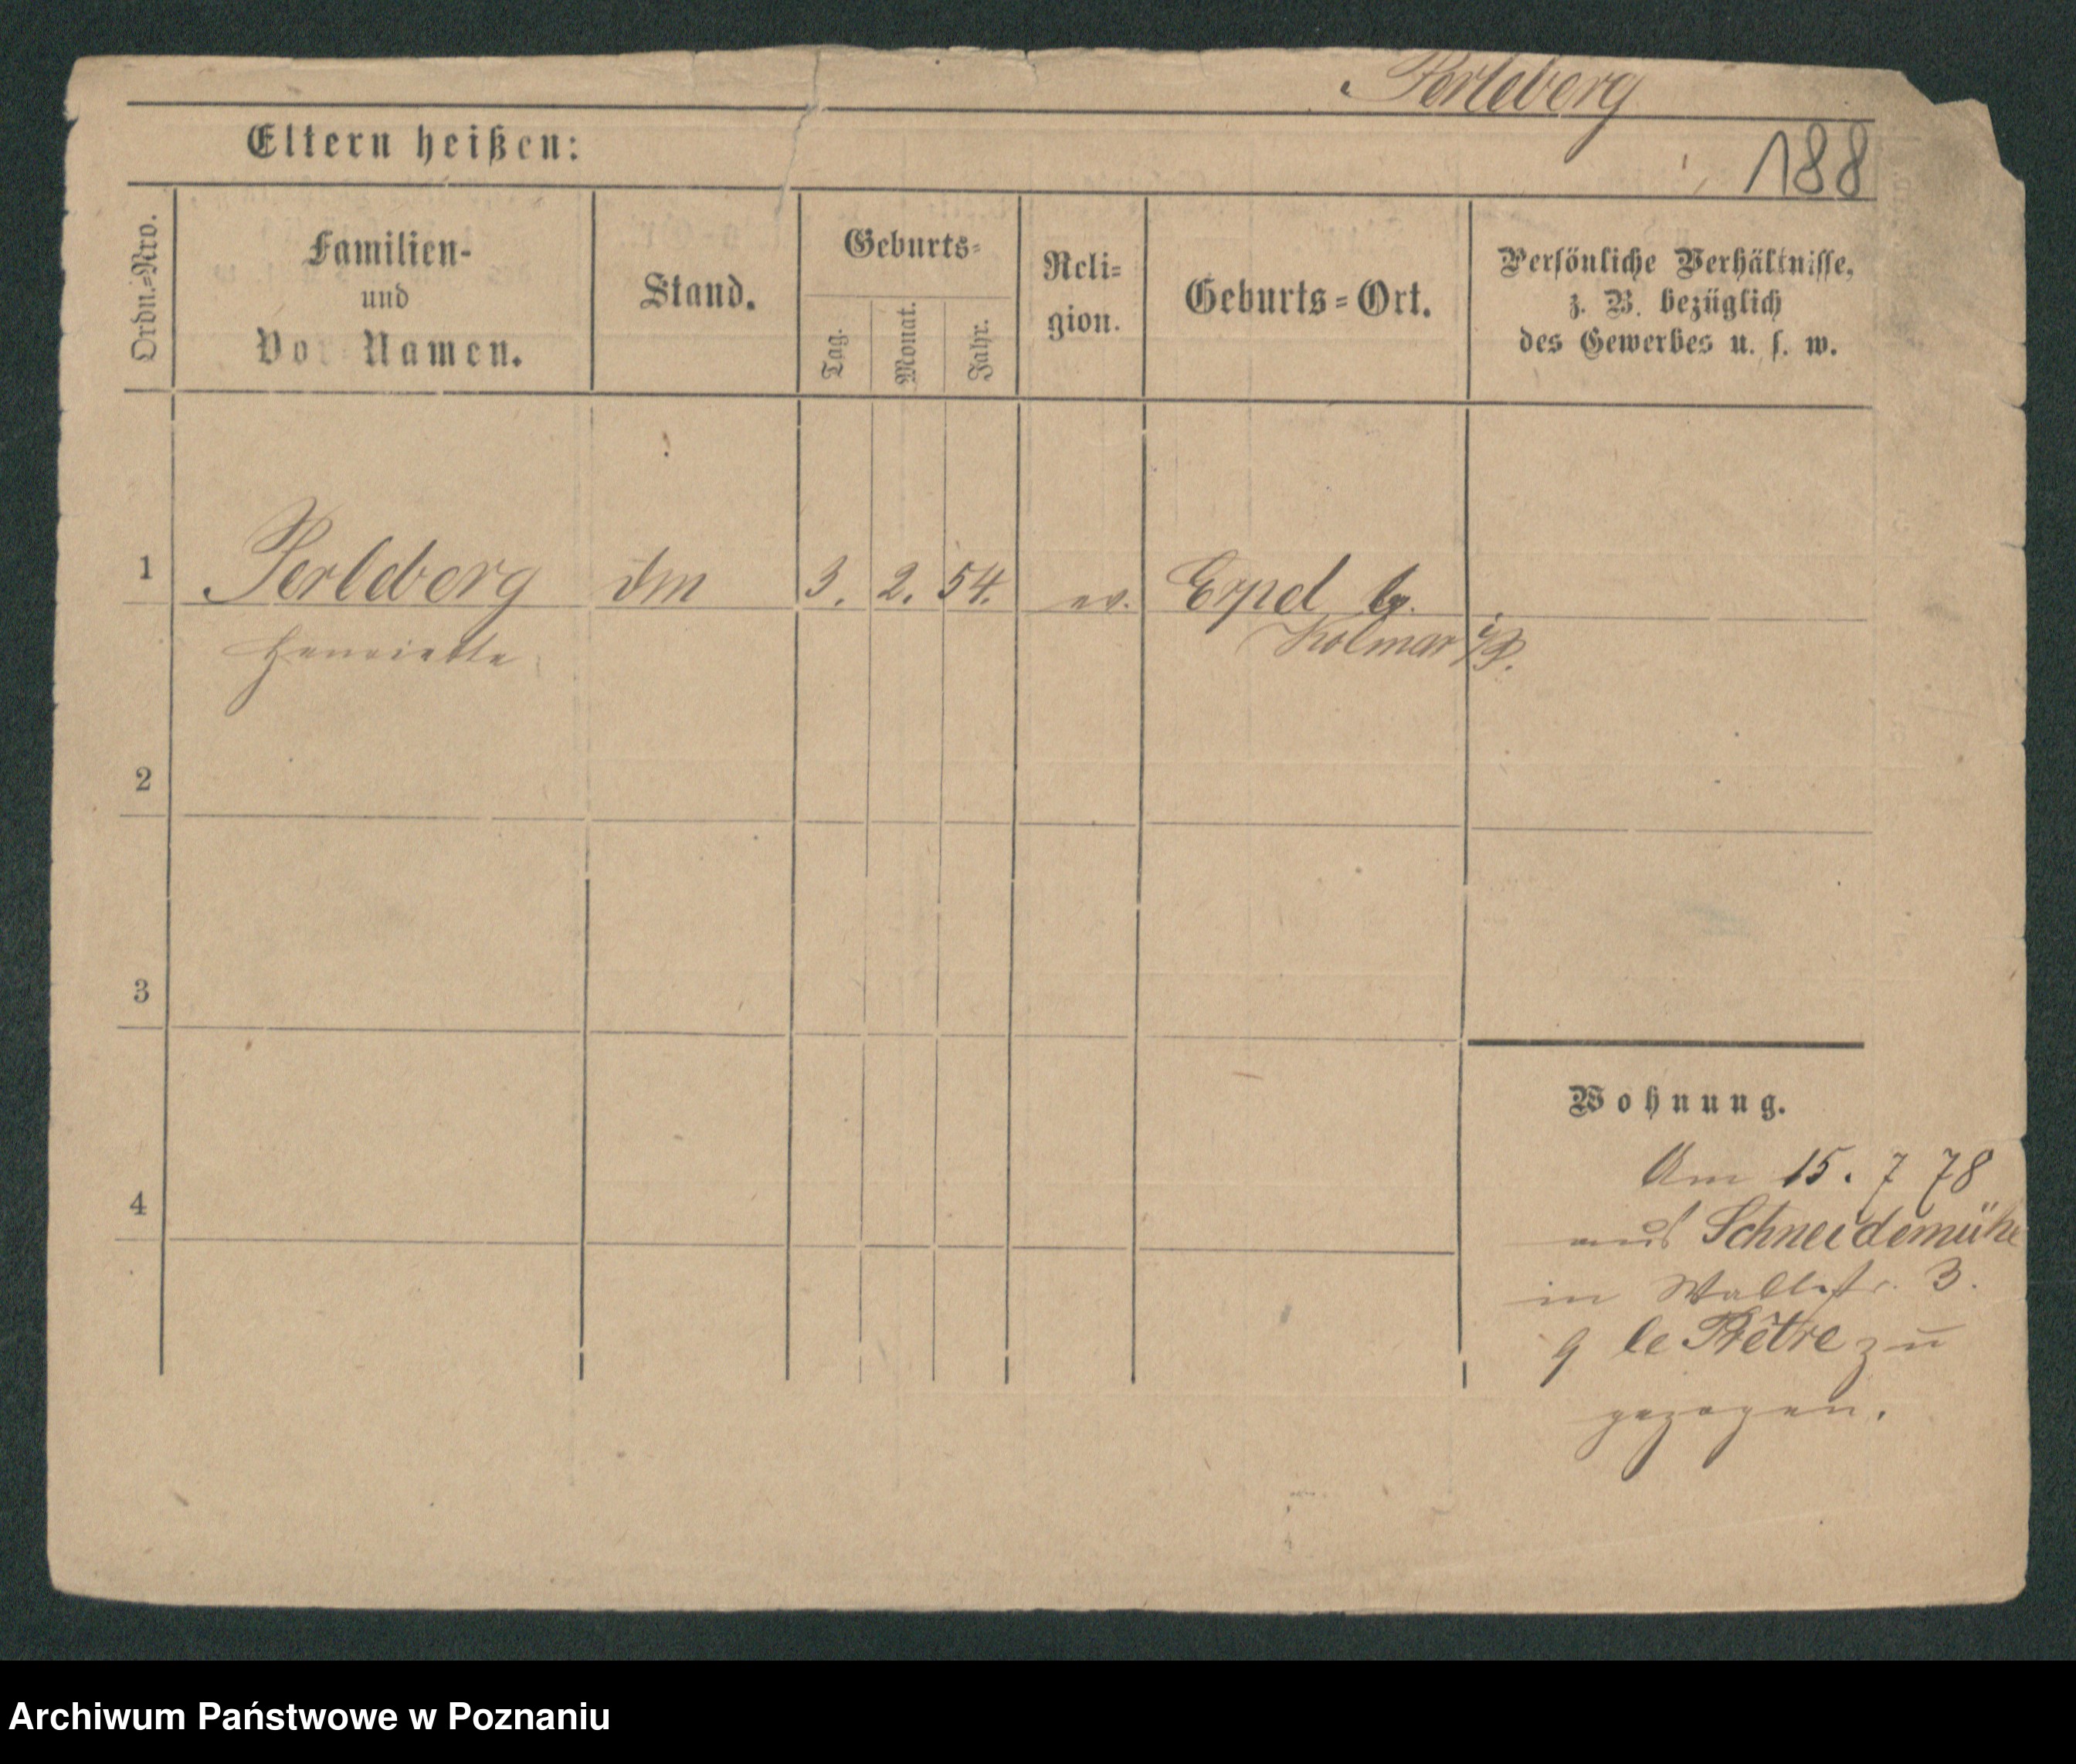 Perleberg
Eltern heißen:
188
Ordn.-Nro.
Familien-
und
Vor Namen.
Stand.
Geburts-
Tag.
Monat.
Jahr.
Reli-
gion.
Geburts-Ort.
Persönliche Verhältnisse,
z. B. bezüglich
des Gewerbes u. s. w.
1
Perleberg
3.
2.
54.
ev.
Erpel
Henriette
Kolmar i/P.
2
3
Wohnung.
Am 15. 7 78
aus Schneidemühl
4
in Wallstr. 3.
le Prêtre zu
gezogen.
Archiwum Państwowe w Poznaniu